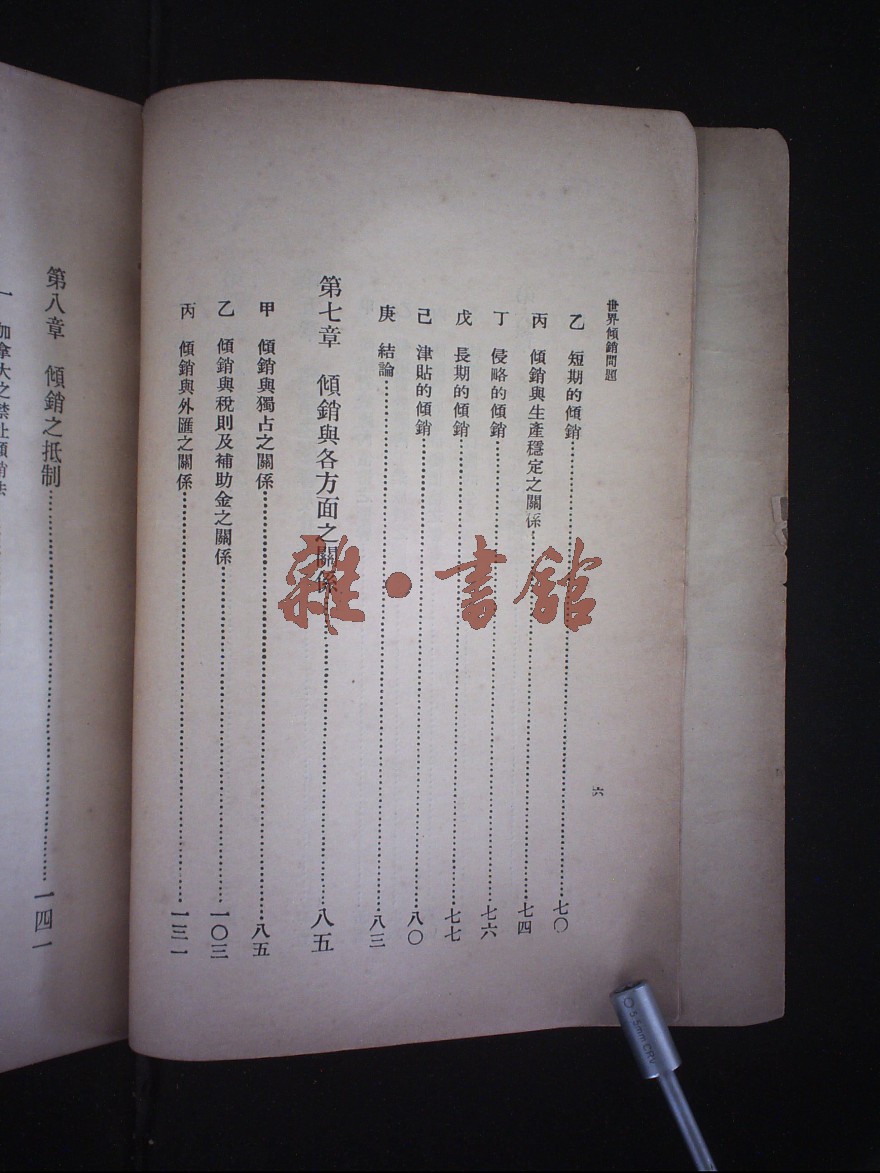 世界傾銷問題
六
乙　短期的傾銷……七〇
丙　傾銷與生產穩定之關係……七四
丁　侵略的傾銷……七六
戊　長期的傾銷……七七
己　津貼的傾銷……八〇
庚　結論……八三
第七章　傾銷與各方面之關係……八五
甲　傾銷與獨占之關係……八五
乙　傾銷與稅則及補助金之關係……一〇三
丙　傾銷與外匯之關係……一三一
第八章　傾銷之抵制……一四一
一　加拿大之禁止傾銷法
雜·書館
5.5mm CRV